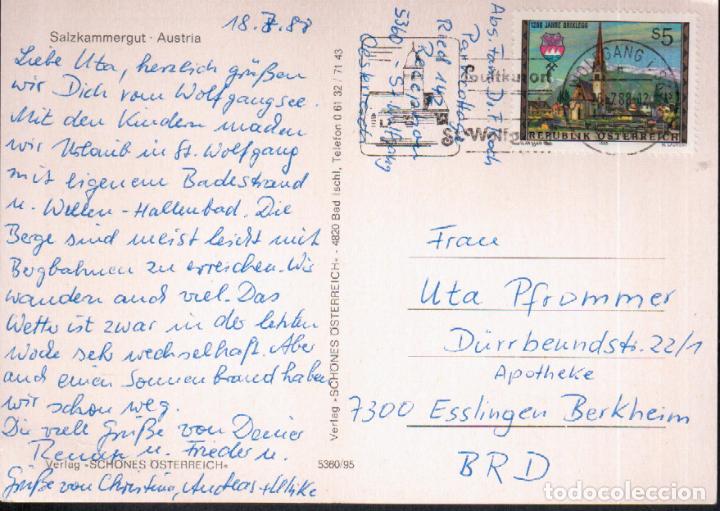 18.7.88
Salzkammergut · Austria
Liebe Uta, herzlich grüßen
wir Dich vom Wolfgangsee.
Mit den Kindern machen
wir Urlaub in St. Wolfgang
mit eigenem Badestrand
u. Wellen-Hallenbad. Die
Berge sind meist leicht mit
Bergbahnen zu erreichen. Wir
wandern auch viel. Das
Wetter ist zwar in der letzten
Woche sehr wechselhaft. Aber
auch einen Sonnenbrand haben
wir schon weg.
Die viele Grüße von Deiner
u. Frieder u.
Grüße von Christina, Andreas +
Verlag »SCHÖNES ÖSTERREICH«
5360/95
Verlag »SCHÖNES ÖSTERREICH« - 4820 Bad Ischl, Telefon 0 61 32 / 71 43
Abs. Fam. Dr. F.
Ried 142
5360 St. Wolfgang
Österreich
Luftkurort
St. Wolfgang
1200 JAHRE BRIXLEGG
S5
REPUBLIK ÖSTERREICH
Frau
Uta Pfrommer
Dürrbeundstr. 22/1
Apotheke
7300 Esslingen Berkheim
BRD